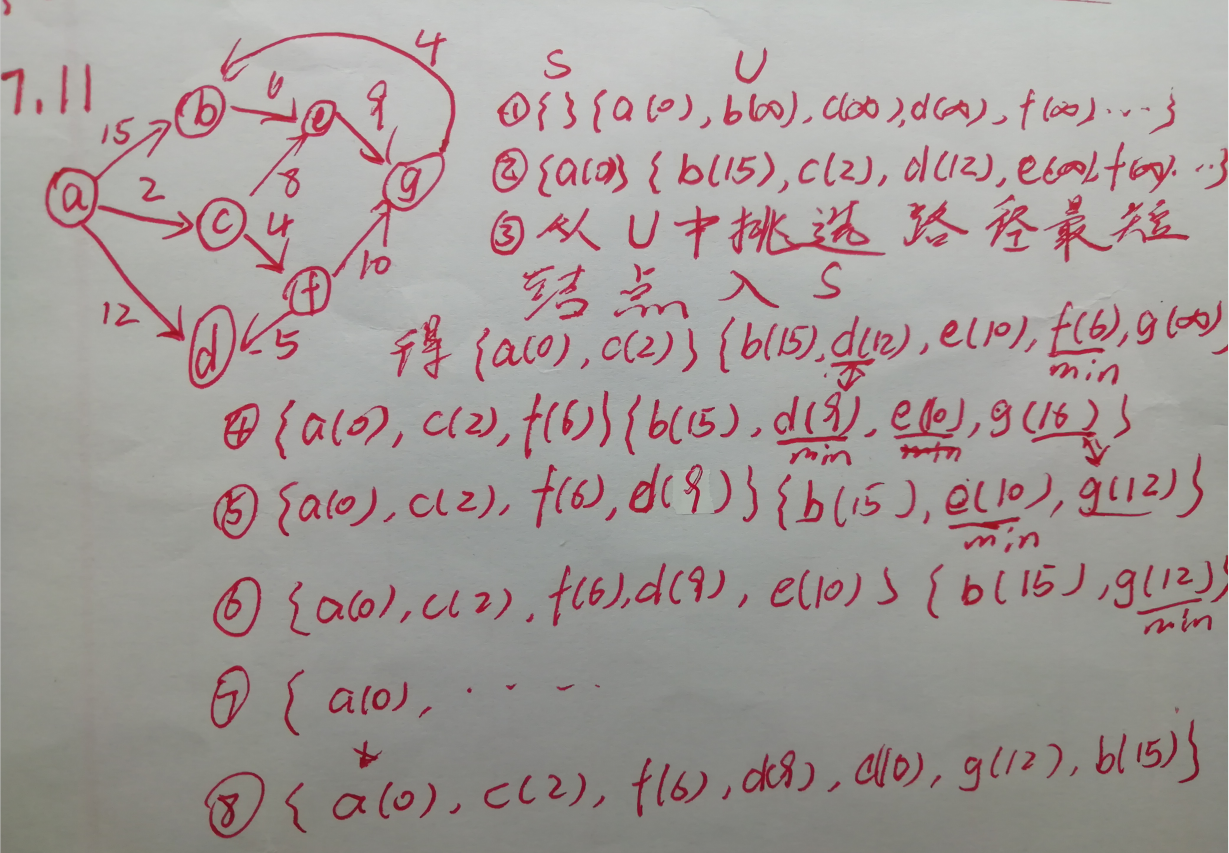 7.11
4
b
6
e
9
15
a
2
8
g
c
4
10
f
12
d
5
S U
① { } { a(0), b(∞), c(∞), d(∞), f(∞) ···· }
② {a(0)} { b(15), c(2), d(12), e(∞), f(∞). ··}
③ 从 U 中挑选 路径最短
结点 入 S
得 {a(0), c(2)} {b(15), d(12), e(10), f(6), g(∞)
min
④ {a(0), c(2), f(6)} {b(15), d(9), e(10), g(16)}
min min
⑤ {a(0), c(2), f(6), d(9)} {b(15), e(10), g(12)}
min
⑥ {a(0), c(2), f(6), d(9), e(10)} {b(15), g(12)}
min
⑦ { a(0), · · - -
⑧ { a(0), c(2), f(6), d(9), e(10), g(12), b(15)}